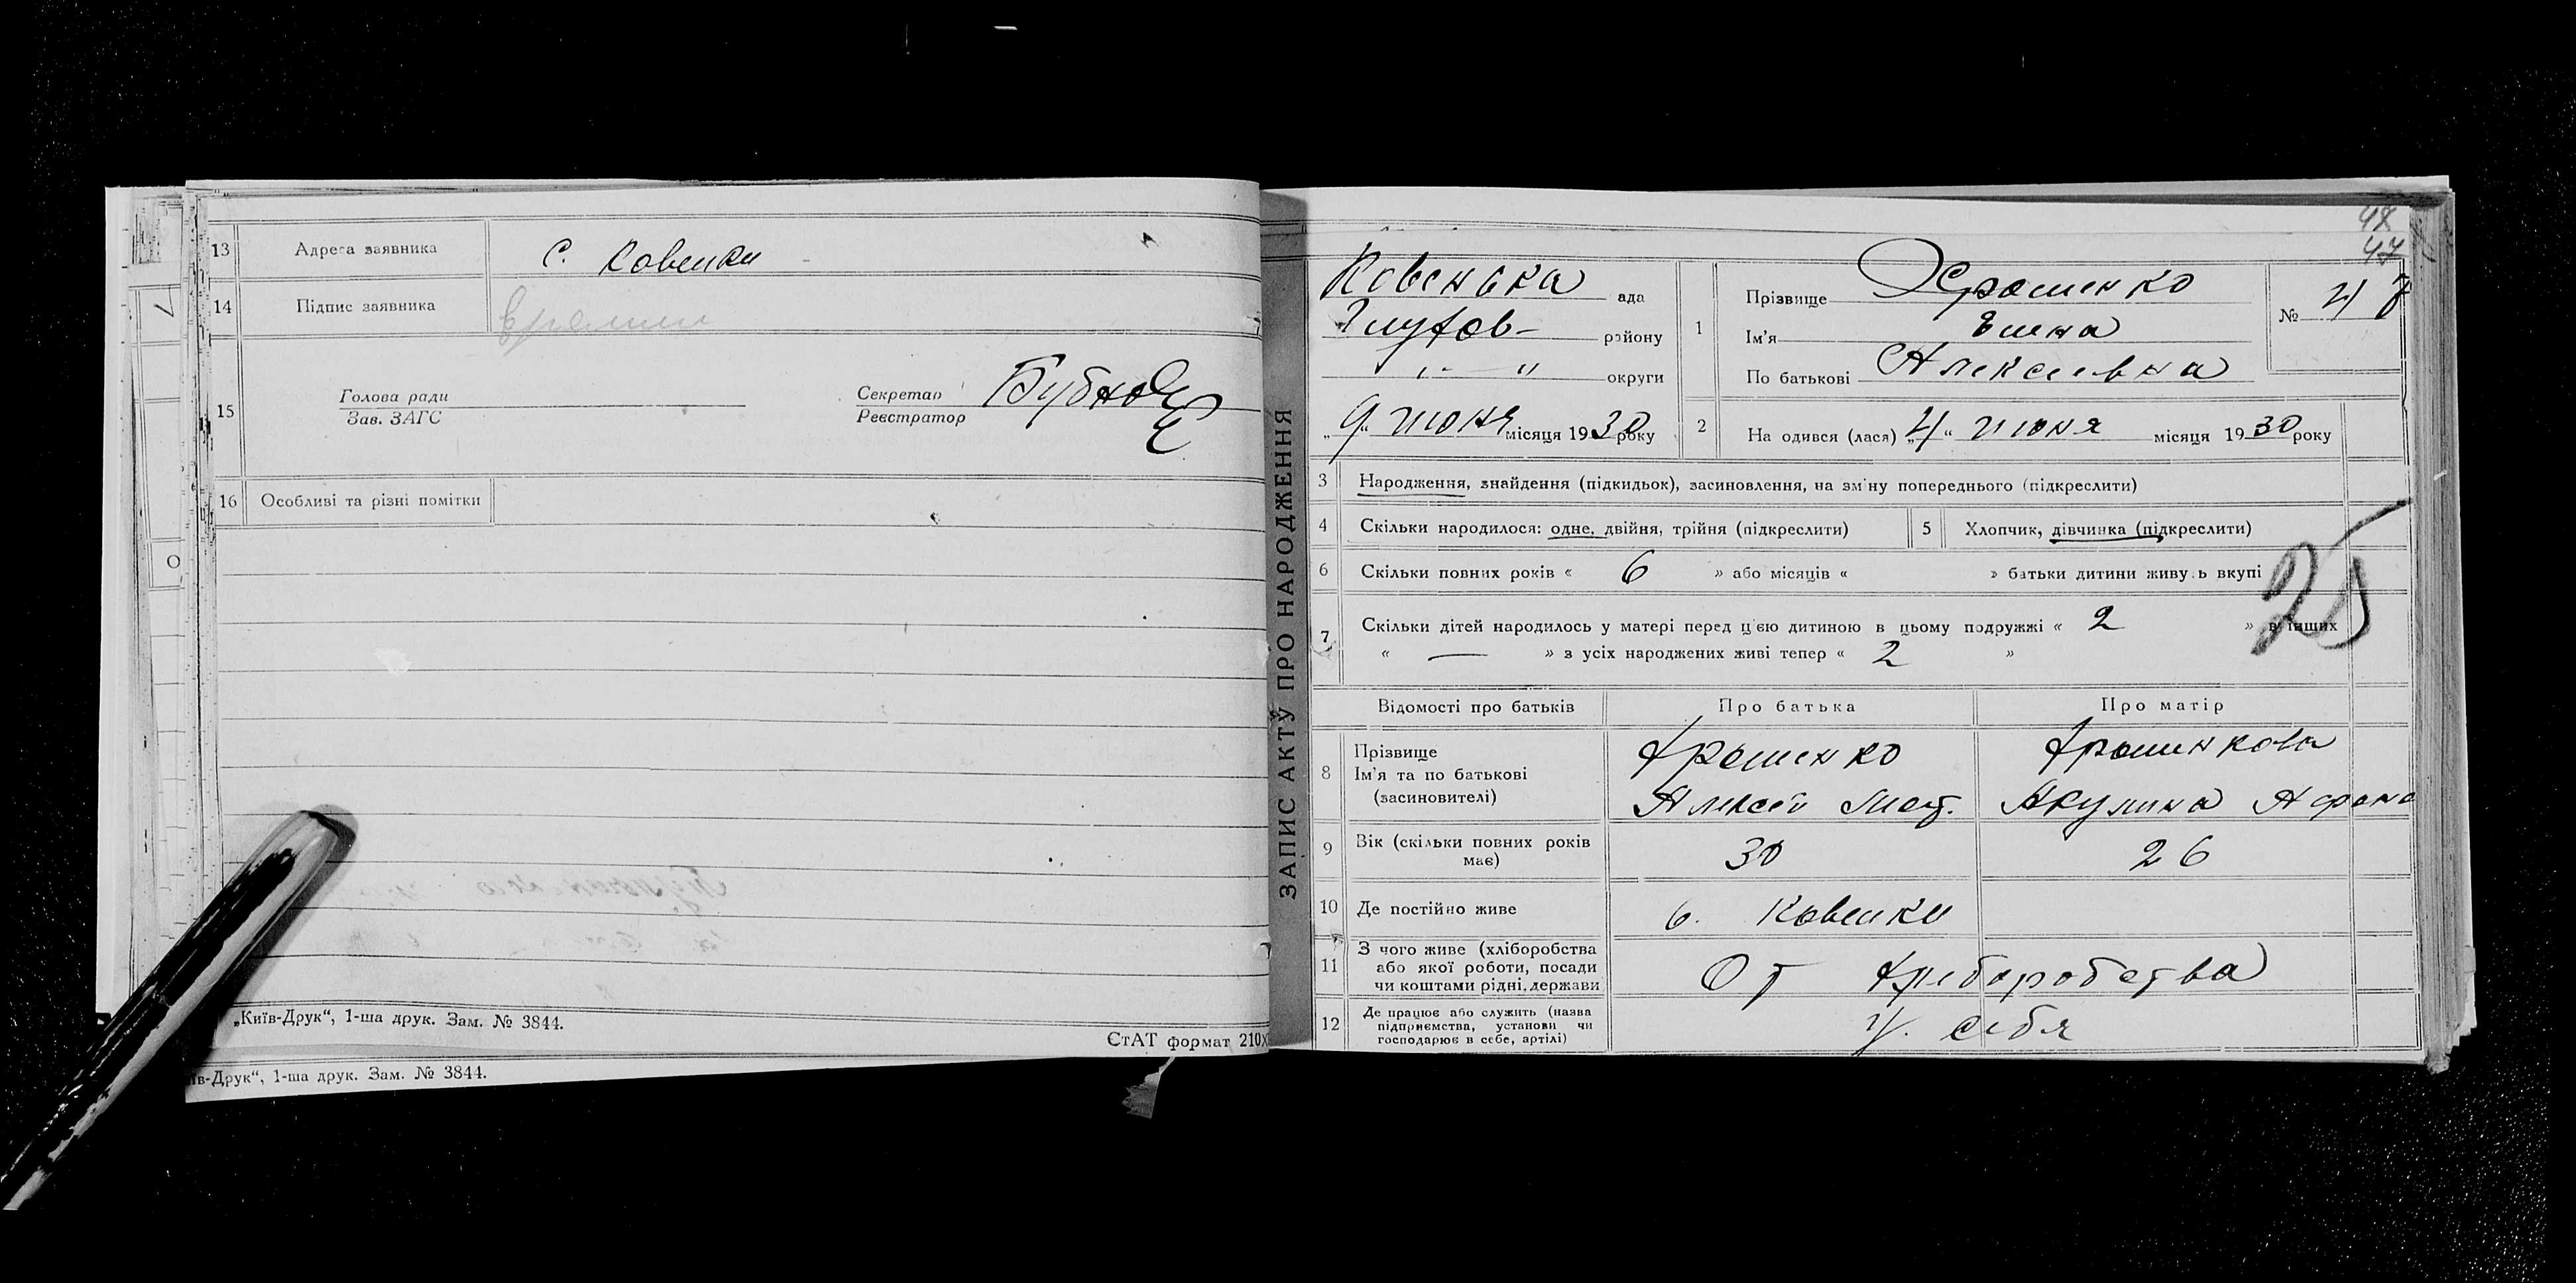 13 Адреса заявника С. Ковенки
14 Підпис заявника
15 Голова ради
Зав. ЗАГС
Секретар
Реєстратор
16 Особливі та різні помітки
„Київ-Друк“, 1-ша друк. Зам. № 3844.
СтАТ формат 210х
ів-Друк“, 1-ша друк. Зам. № 3844.
ЗАПИС АКТУ ПРО НАРОДЖЕННЯ
48
47
Ковенька ада
Глухов- району
„ — „ округи
„ 9 „ июня місяця 1930 року
1 Прізвище Хроменко
Ім'я Елена
По батькові Алексеевна
№ 47
2 На одився (лася) „4“ июня місяця 1930 року
3 Народження, знайдення (підкидьок), засиновлення, на зм'ну попереднього (підкреслити)
4 Скільки народилося: одне, двійня, трійня (підкреслити)
5 Хлопчик, дівчинка (підкреслити)
6 Скільки повних років « 6 » або місяців « » батьки дитини живу ь вкупі
25
7 Скільки дітей народилось у матері перед ц'єю дитиною в цьому подружжі « 2 » в інших
« — » з усіх народжених живі тепер « 2 »
Відомості про батьків Про батька Про матір
8 Прізвище
Ім'я та по батькові
(засиновителі)
Хроменко
Алексей
Хроменкова
Акулина Афана
9 Вік (скільки повних років має) 30 26
10 Де постійно живе с. Ковенки
11 З чого живе (хліборобства
або якої роботи, посади
чи коштами рідні, держави
От хлеборобства
12 Де працює або служить (назва
підприємства, установи чи
господарює в себе, артілі)
У себя